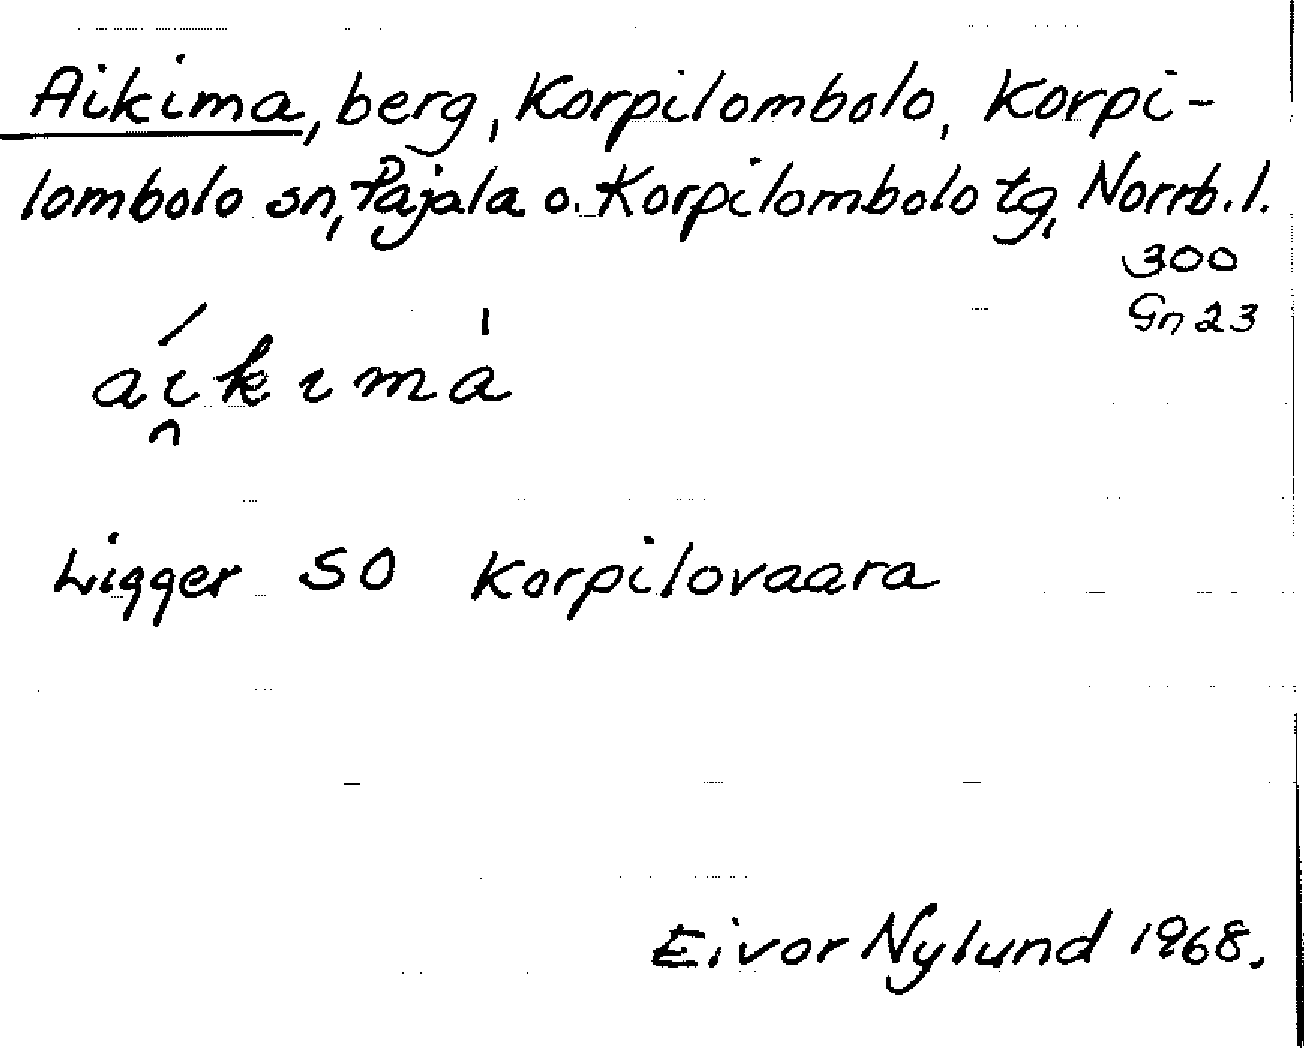 Aikima, berg, Korpilombolo, Korpi-
lombolo sn, Pajala o. Korpilombolo tg, Norrb. l.
300
Gn 23
aı̯́kıma̍
Ligger SO Korpilovaara
Eivor Nylund 1968.